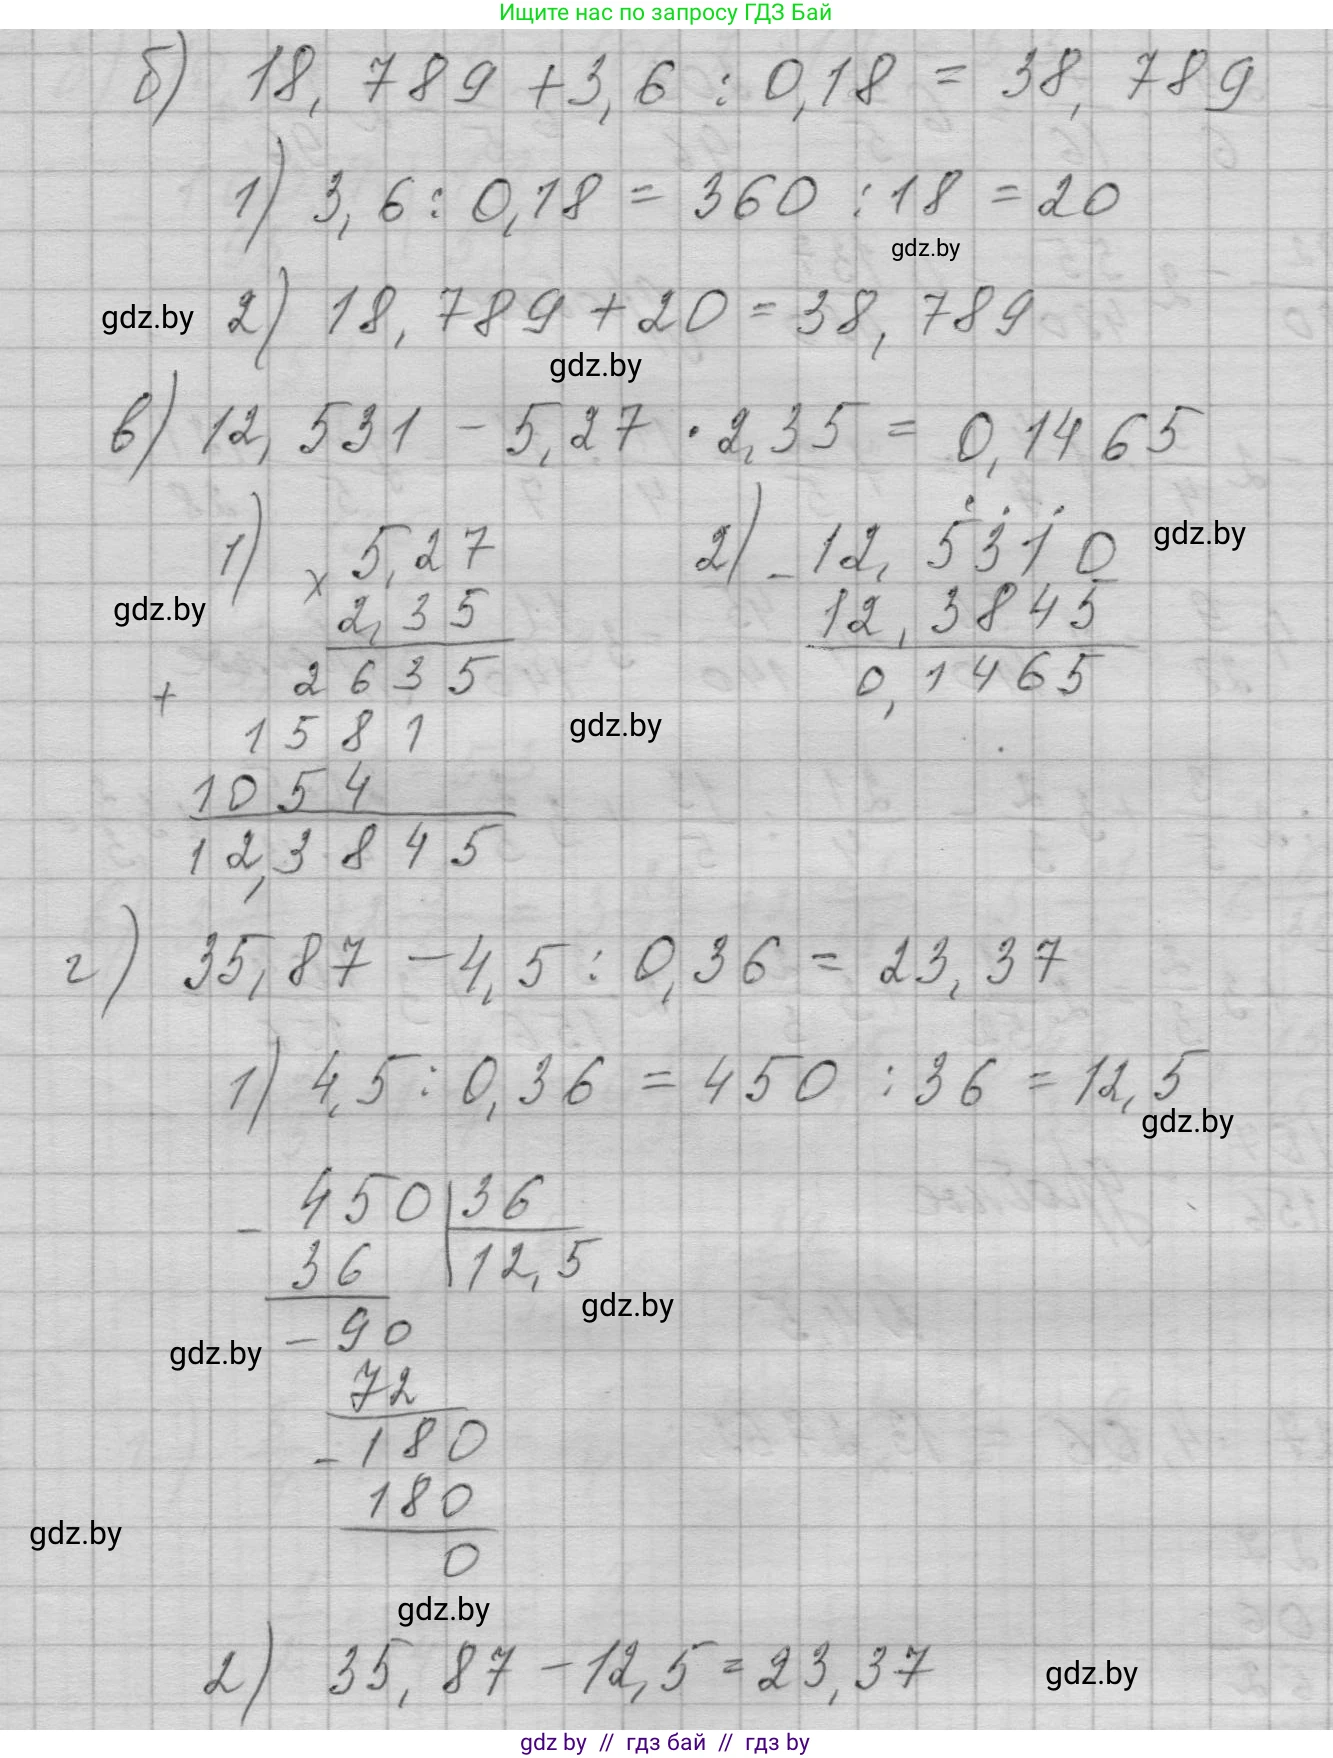 Ищите нас по запросу ГДЗ Бай
б) 18,789 + 3,6 : 0,18 = 38,789
1) 3,6 : 0,18 = 360 : 18 = 20
gdz.by
gdz.by 2) 18,789 + 20 = 38,789
gdz.by
в) 12,531 - 5,27 · 2,35 = 0,1465
1) × 5,27 2) - 12,5310 gdz.by
gdz.by 2,35 12,3845
+ 2635 0,1465
1581 gdz.by
1054
12,3845
г) 35,87 - 4,5 : 0,36 = 23,37
1) 4,5 : 0,36 = 450 : 36 = 12,5
gdz.by
- 450 | 36
36 12,5
gdz.by
gdz.by - 90
72
- 180
180
gdz.by
0
gdz.by
2) 35,87 - 12,5 = 23,37 gdz.by
gdz by // гдз бай // гдз by